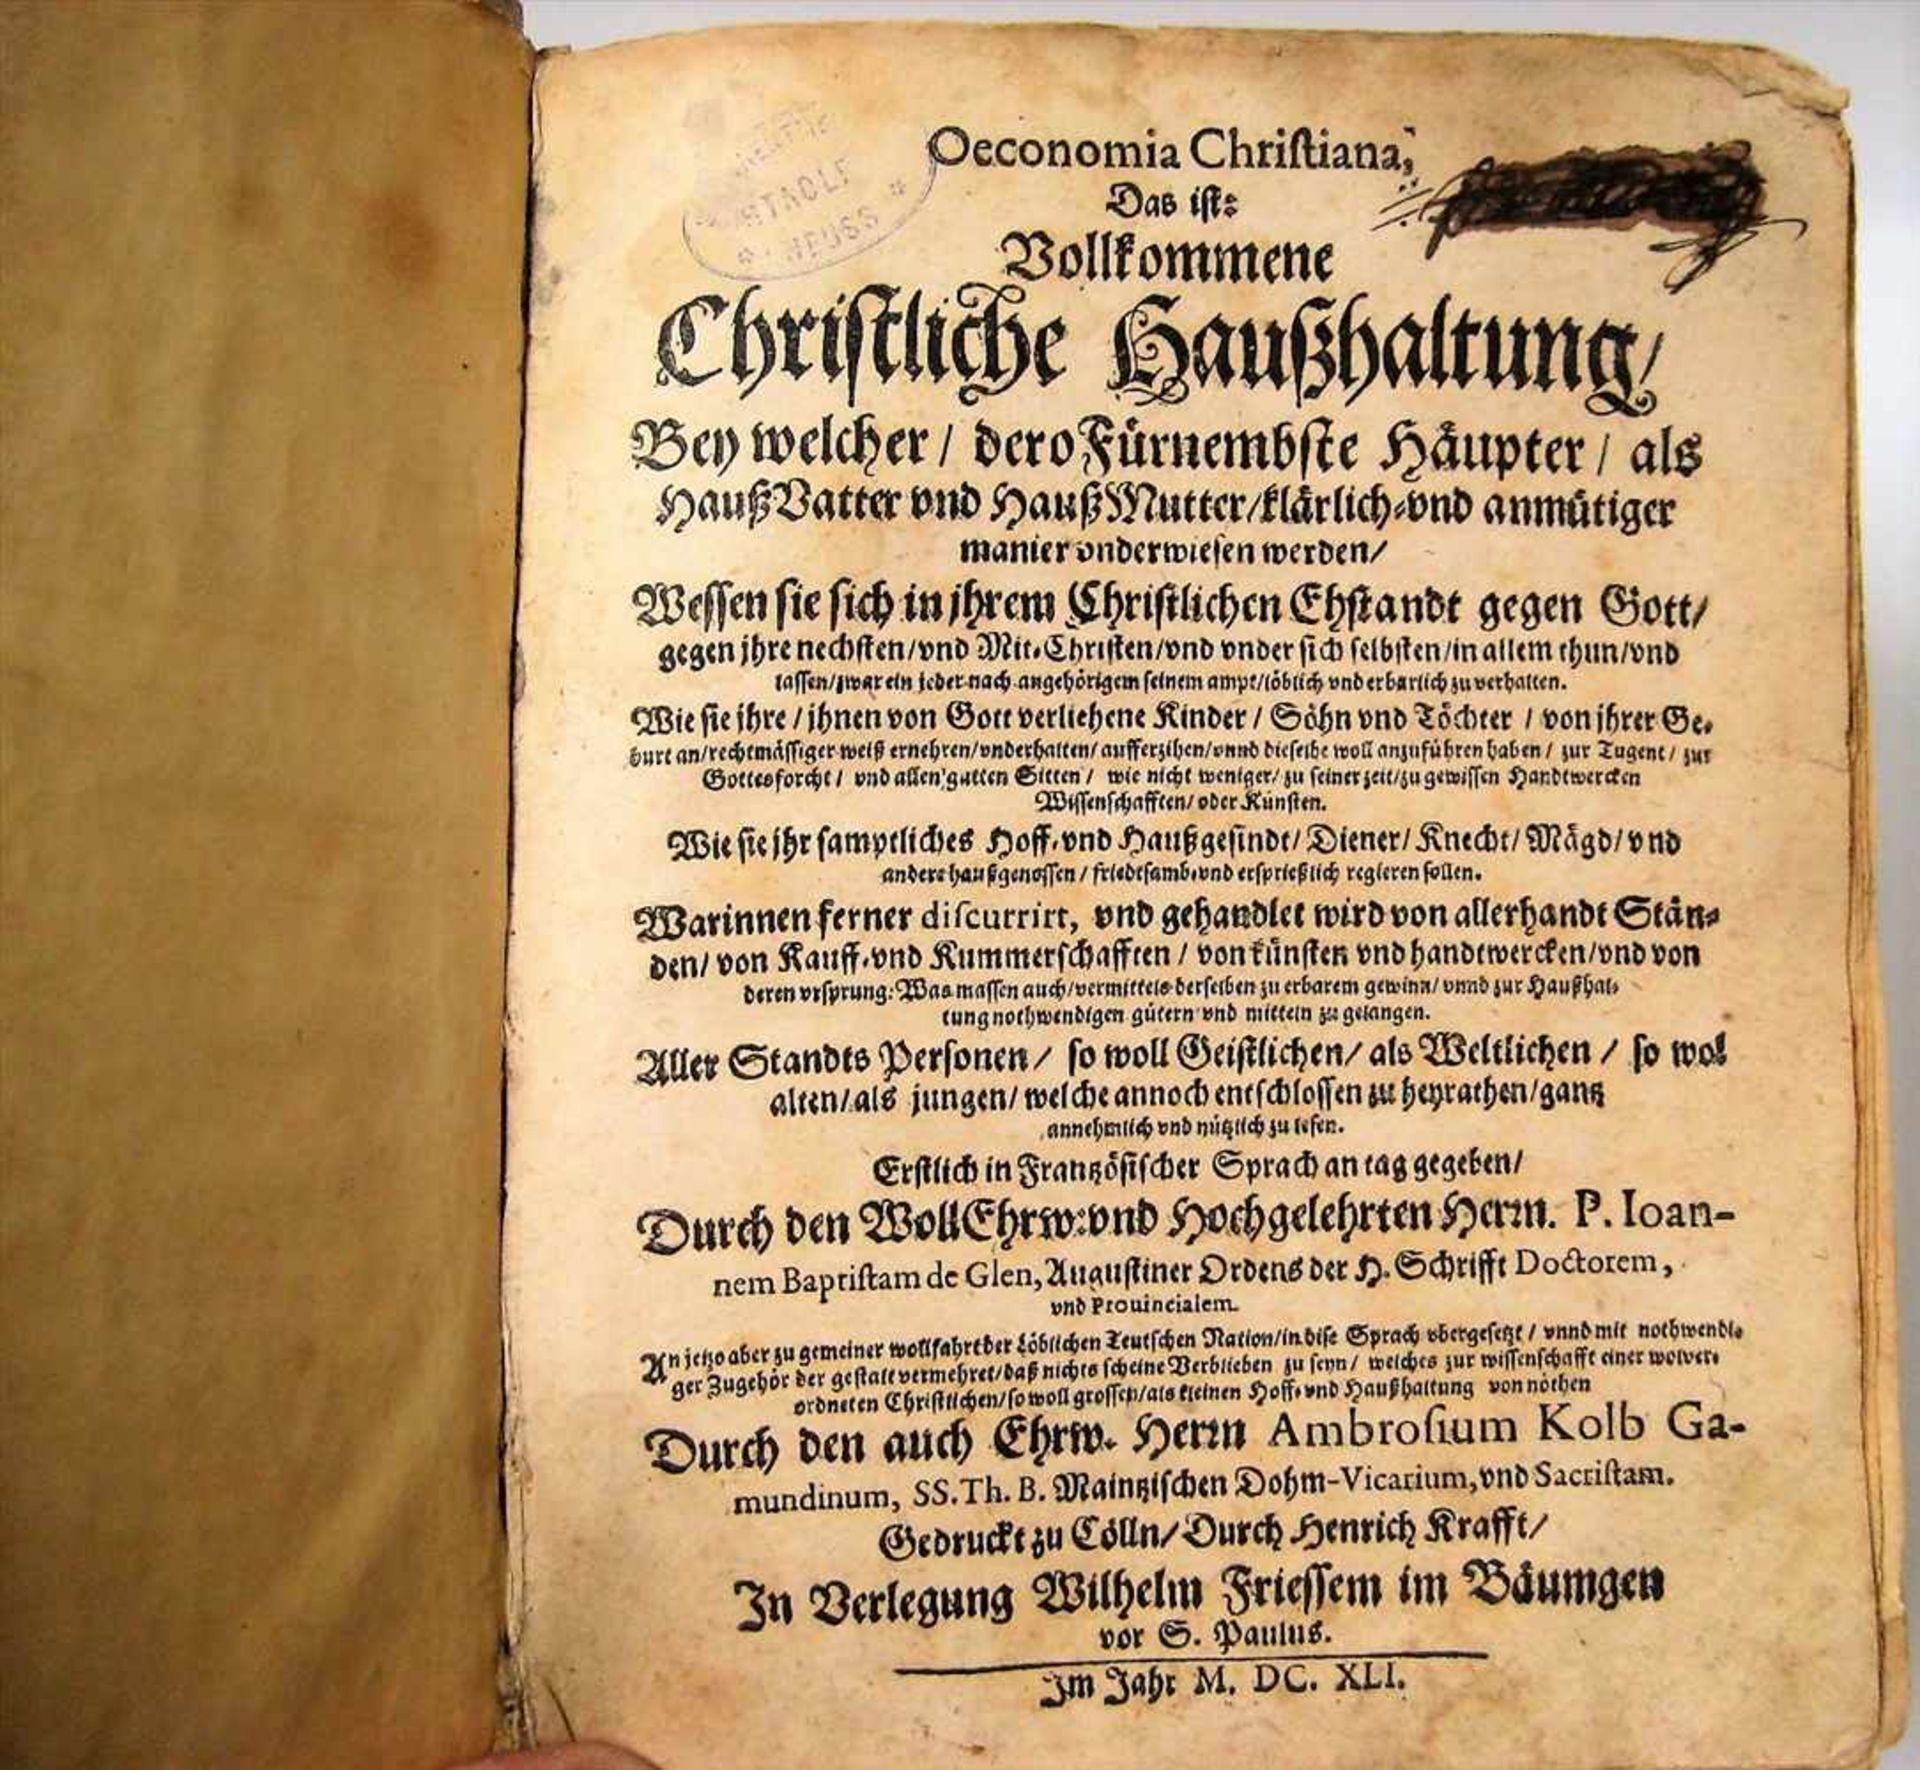 NEUSS
Oeconomia Chriſtiana,
Das iſt:
Vollkommene
Chriſtliche Haußhaltung/
Bey welcher / dero Fürnembſte Häupter / als
Hauß Vatter vnd Hauß Mutter/klärlich-vnd anmütiger
manier vnderwieſen werden/
Weſſen ſie ſich in jhrem Chriſtlichen Ehſtandt gegen Gott/
gegen jhre nechſten/vnd Mit-Chriſten/vnd vnder ſich ſelbſten/in allem thun/vnd
laſſen/zwar ein jeder nach angehörigem ſeinem ampt/löblich vnd erbarlich zu verhalten.
Wie ſie jhre / jhnen von Gott verliehene Kinder / Söhn vnd Töchter / von jhrer Ge-
burt an/rechtmäſſiger weiß ernehren/vnderhalten/aufferzihen/vnnd dieſelbe woll anzuführen haben / zur Tugent / zur
Gottesforcht / vnd allen gutten Sitten / wie nicht weniger/ zu ſeiner zeit/zu gewiſſen Handtwercken
Wiſſenſchafften/ oder Künſten.
Wie ſie jhr ſamptliches Hoff-vnd Haußgeſindt/ Diener/ Knecht/ Mägd/ vnd
andere haußgenoſſen / friedtſamb-vnd erſprießlich regieren ſollen.
Warinnen ferner diſcurrirt, vnd gehandlet wird von allerhandt Stän-
den/ von Kauff-vnd Kummerſchafften / von künſten vnd handtwercken/vnd von
deren vrſprung: Was maſſen auch/vermittels derſelben zu erbarem gewinn/ vnnd zur Haußhal-
tung nothwendigen gütern vnd mitteln zu gelangen.
Aller Standts Perſonen / ſo woll Geiſtlichen/ als Weltlichen / ſo wol
alten/als jungen/ welche annoch entſchloſſen zu heyrathen/gantz
annehmlich vnd nützlich zu leſen.
Erſtlich in Frantzöſiſcher Sprach an tag gegeben/
Durch den WollEhrw:vnd Hochgelehrten Herrn. P. Ioan-
nem Baptiſtam de Glen, Auguſtiner Ordens der H. Schrifft Doctorem,
vnd Prouincialem.
An jetzo aber zu gemeiner wollfahrt der Löblichen Teutſchen Nation/in diſe Sprach vbergeſetzt / vnnd mit nothwendi-
ger Zugehör der geſtalt vermehret/daß nichts ſcheine Verblieben zu ſeyn/ welches zur wiſſenſchafft einer wolver-
ordneten Chriſtlichen/ſo woll groſſen/als kleinen Hoff-vnd Haußhaltung von nöthen
Durch den auch Ehrw. Herrn Ambroſium Kolb Ga-
mundinum, SS. Th. B. Maintziſchen Dohm-Vicarium,vnd Sacriſtam.
Gedruckt zu Cölln/Durch Henrich Krafft/
In Verlegung Wilhelm Frieſſem im Bäumgen
vor S. Paulus.
Im Jahr M. DC. XLI.